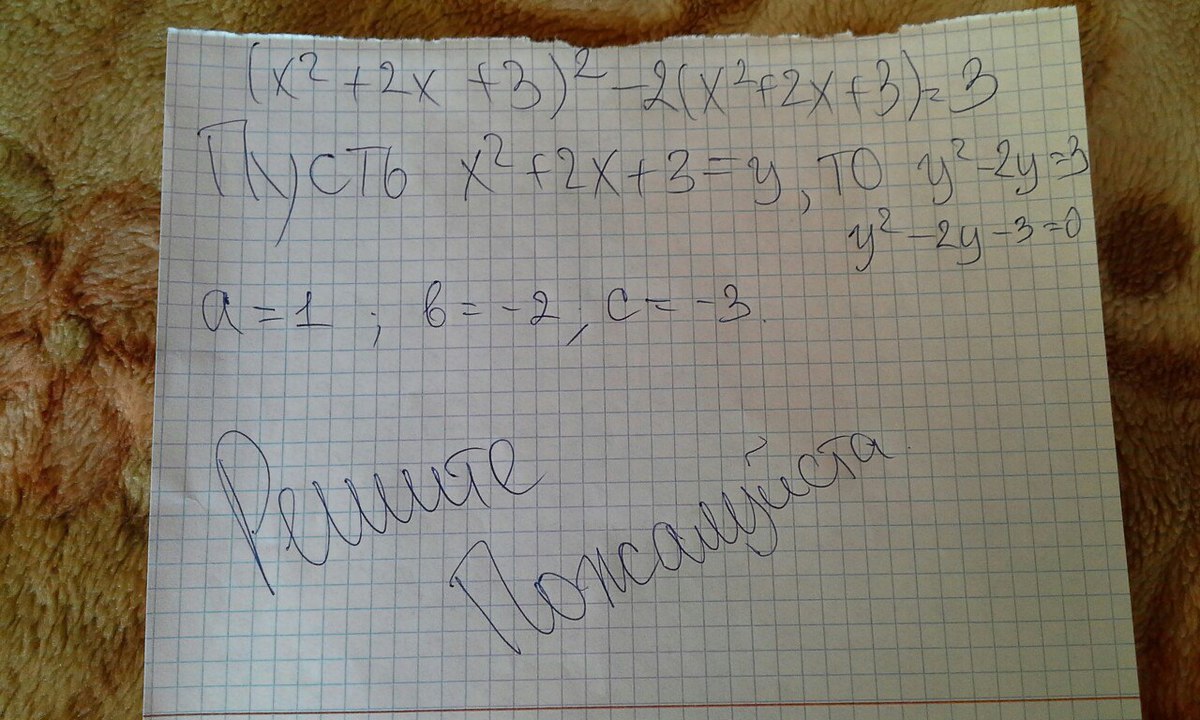 (x² + 2x + 3)² - 2(x² + 2x + 3) = 3
Пусть x² + 2x + 3 = y, то y² - 2y = 3
y² - 2y - 3 = 0
a = 1 ; в = -2 ; c = -3.
Решите
Пожалуйста